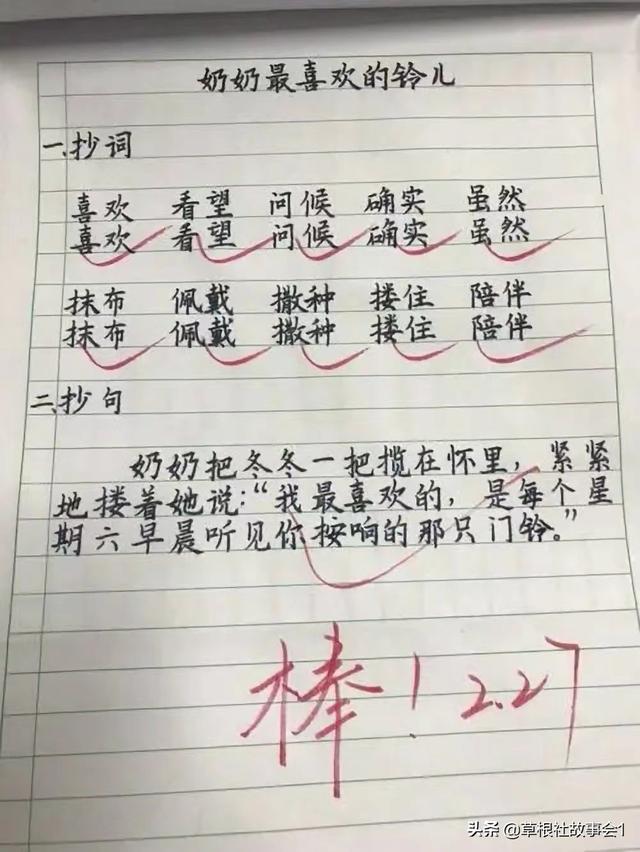 奶奶最喜欢的铃儿
一、抄词
喜欢 看望 问候 确实 虽然
喜欢 看望 问候 确实 虽然
抹布 佩戴 撒种 搂住 陪伴
抹布 佩戴 撒种 搂住 陪伴
二、抄句
奶奶把冬冬一把揽在怀里，紧紧
地搂着她说:“我最喜欢的，是每个星
期六早晨听见你按响的那只门铃。”
棒！2.27
头条 @草根社故事会1